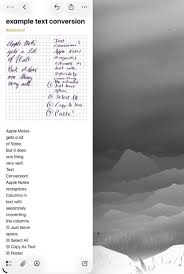 example text conversion
Apple Notes
gets a lot
of Slate.
But it does
one thing
very well.
"Text
Conversion"
Apple Notes
recognizes
columns in
text with
separately
converting
the columns.
① Just leave
space.
② Select All
③ Copy As Text
④ Paste
Apple Notes
gets a lot
of Slate.
But it does
one thing
very well:
Text
Conversion!
Apple Notes
recognizes
Columns in
text with
separately
converting
the columns.
① Just leave
space.
② Select All
③ Copy As Text
④ Paste